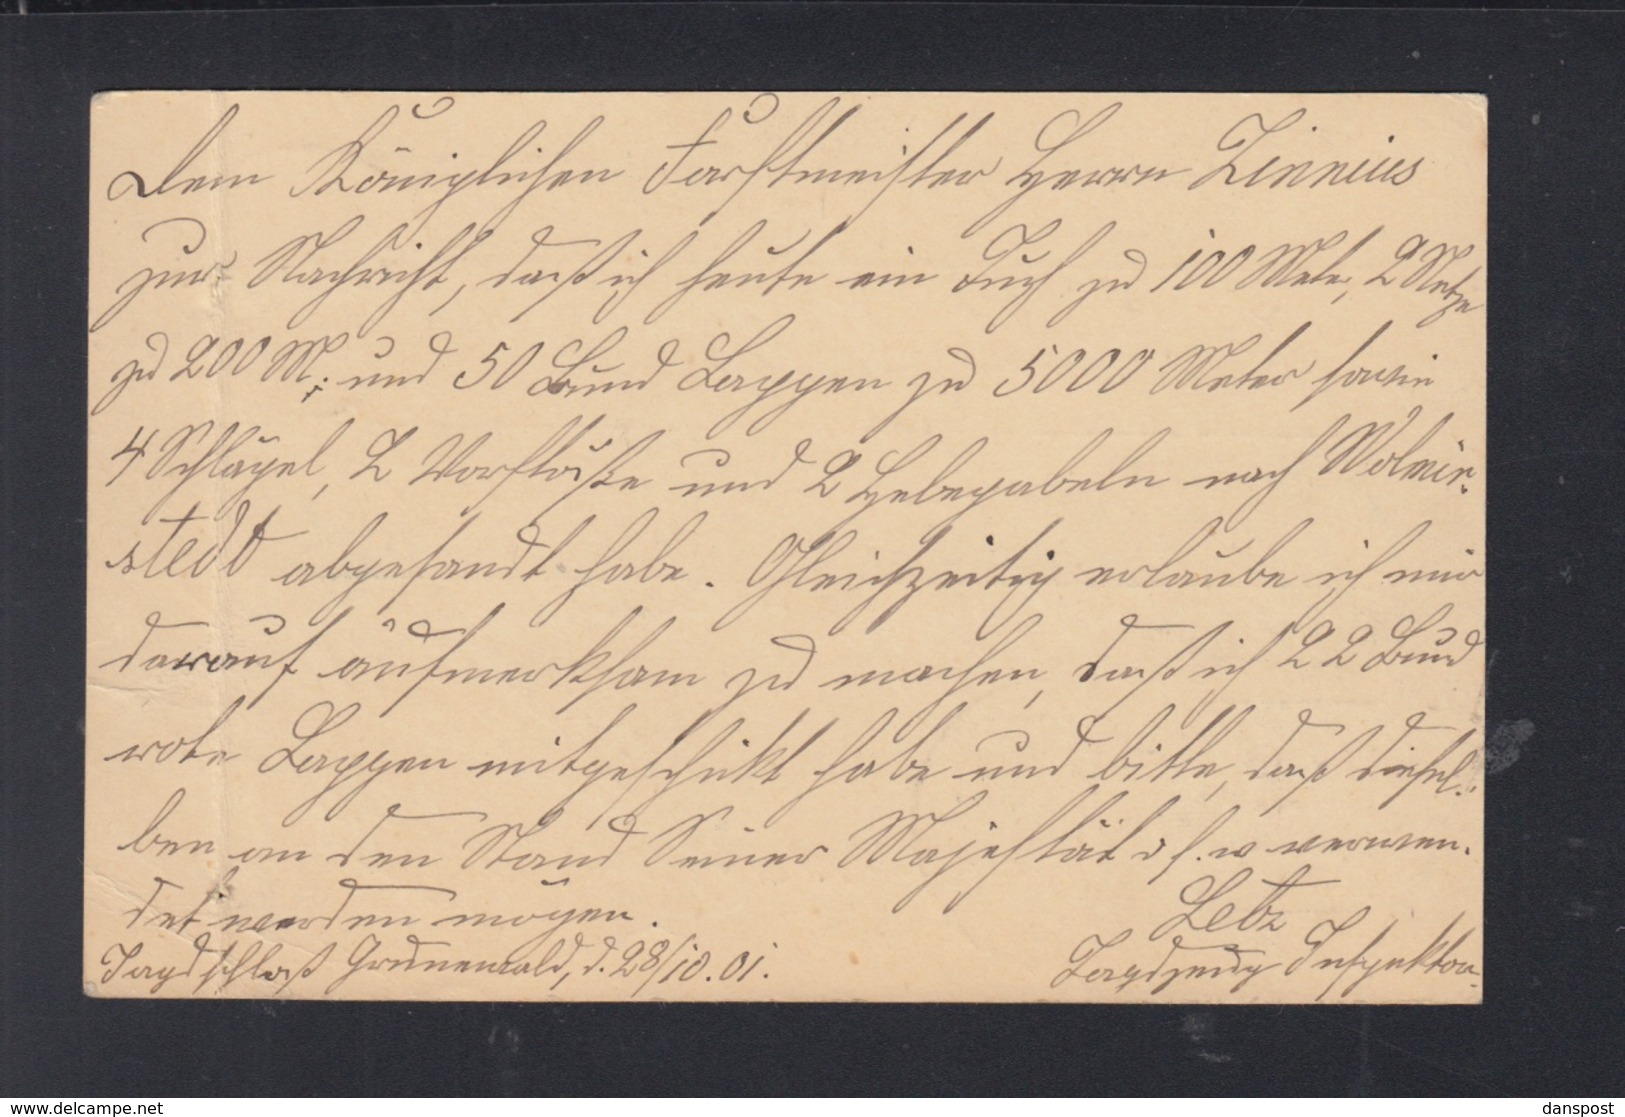 Dem Königlichen Forstmeister Herrn Zinnius
zur Nachricht, daß ich heute ein Tuch zu 100 Mete, 2 Netze
zu 200 M. und 50 Bund Lappen zu 5000 Meter sowie
4 Schlägel, 2 Vorstöße und 2 Hebegabeln nach Wolmir-
stedt abgesandt habe. Gleichzeitig erlaube ich mir
darauf aufmerksam zu machen, daß ich 22 Bund
rote Lappen mitgeschickt habe und bitte, daß diesel-
ben an den Stand Seiner Majestät u.s.w verwen-
det werden mögen.
Jagdschloß Grunewald, d. 28/10.01.
Letz
Jagdzeug Inspektor.
danspost
copyright-www.delcampe.net